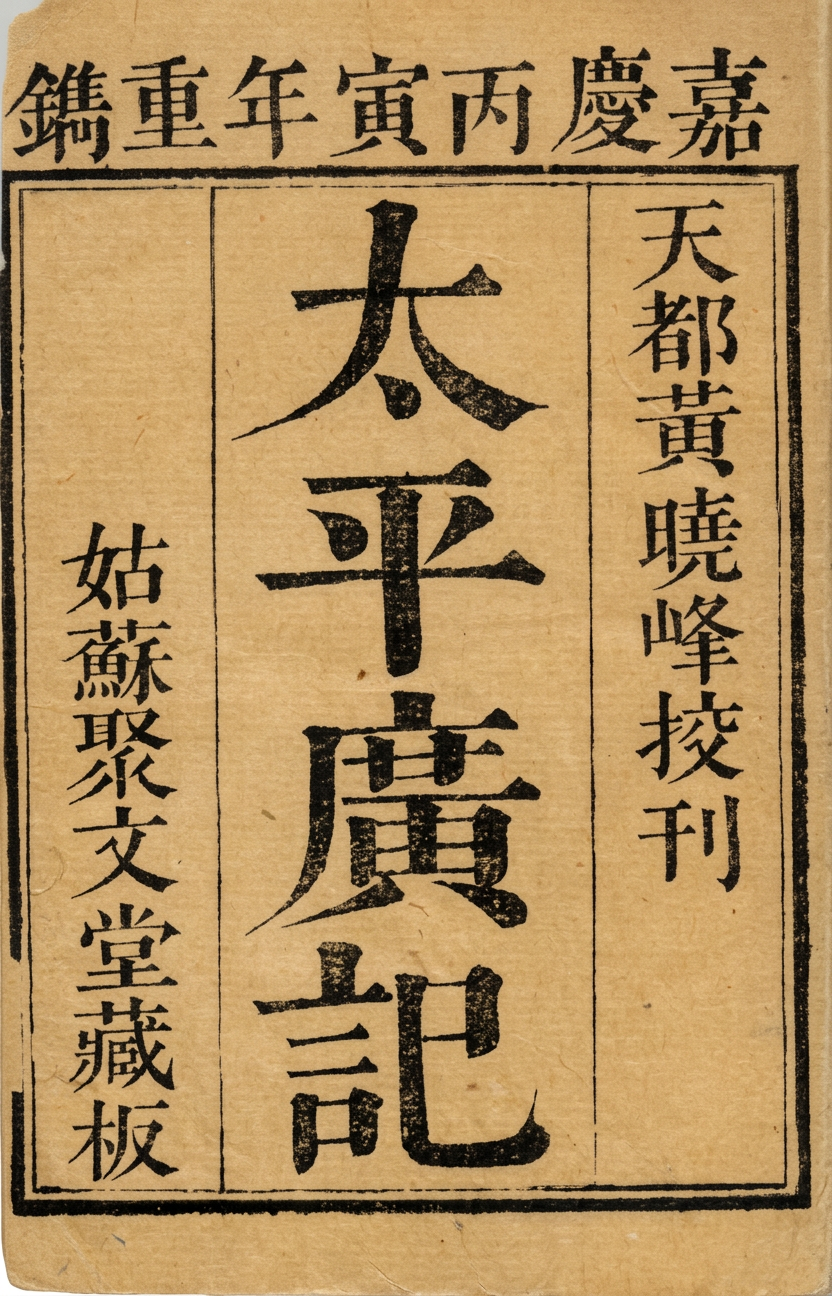 嘉慶丙寅年重鐫
天都黃曉峰挍刊
太平廣記
姑蘇聚文堂藏板